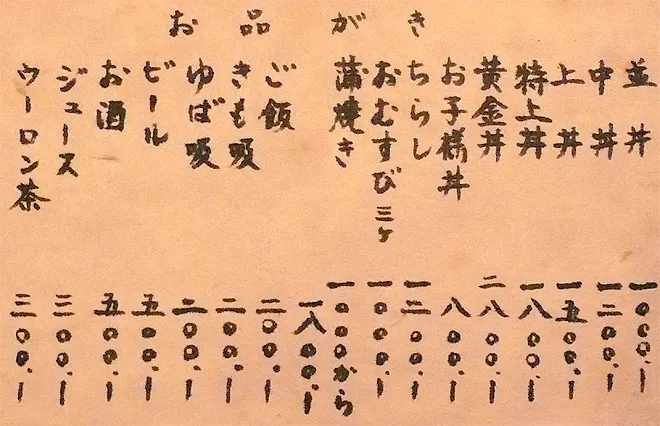 お品がき
並丼 一〇〇〇.-
中丼 一二〇〇.-
上丼 一五〇〇.-
特上丼 一八〇〇.-
黄金丼 二八〇〇.-
お子様丼 八〇〇.-
ちらし 一二〇〇.-
おむすび三ヶ 一〇〇〇.-
蒲焼き 一〇〇〇から
一八〇〇.-
ご飯 二〇〇.-
きも吸 二〇〇.-
ゆば吸 二〇〇.-
ビール 五〇〇.-
お酒 五〇〇.-
ジュース 三〇〇.-
ウーロン茶 三〇〇.-